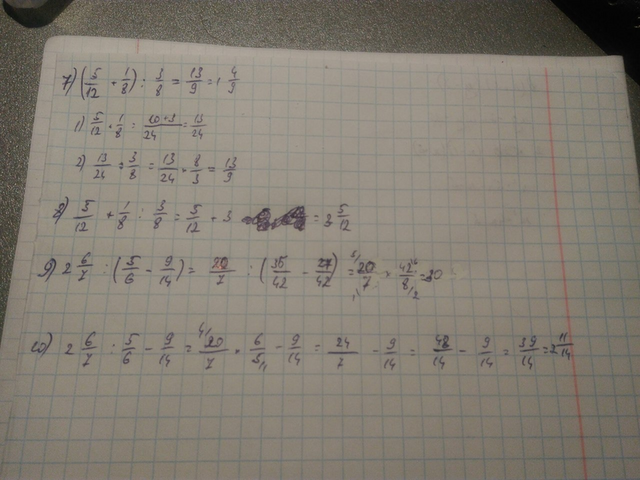 7) (5/12 + 1/8) : 3/8 = 13/9 = 1 4/9
1) 5/12 + 1/8 = (10+3)/24 = 13/24
2) 13/24 : 3/8 = 13/24 · 8/3 = 13/9
8) 5/12 + 1/8 : 3/8 = 5/12 + 3 = 3 5/12
9) 2 6/7 : (5/6 - 9/14) = 20/7 : (35/42 - 27/42) = 20/7 · 42/8 = 30
10) 2 6/7 : 5/6 - 9/14 = 20/7 · 6/5 - 9/14 = 24/7 - 9/14 = 48/14 - 9/14 = 39/14 = 2 11/14